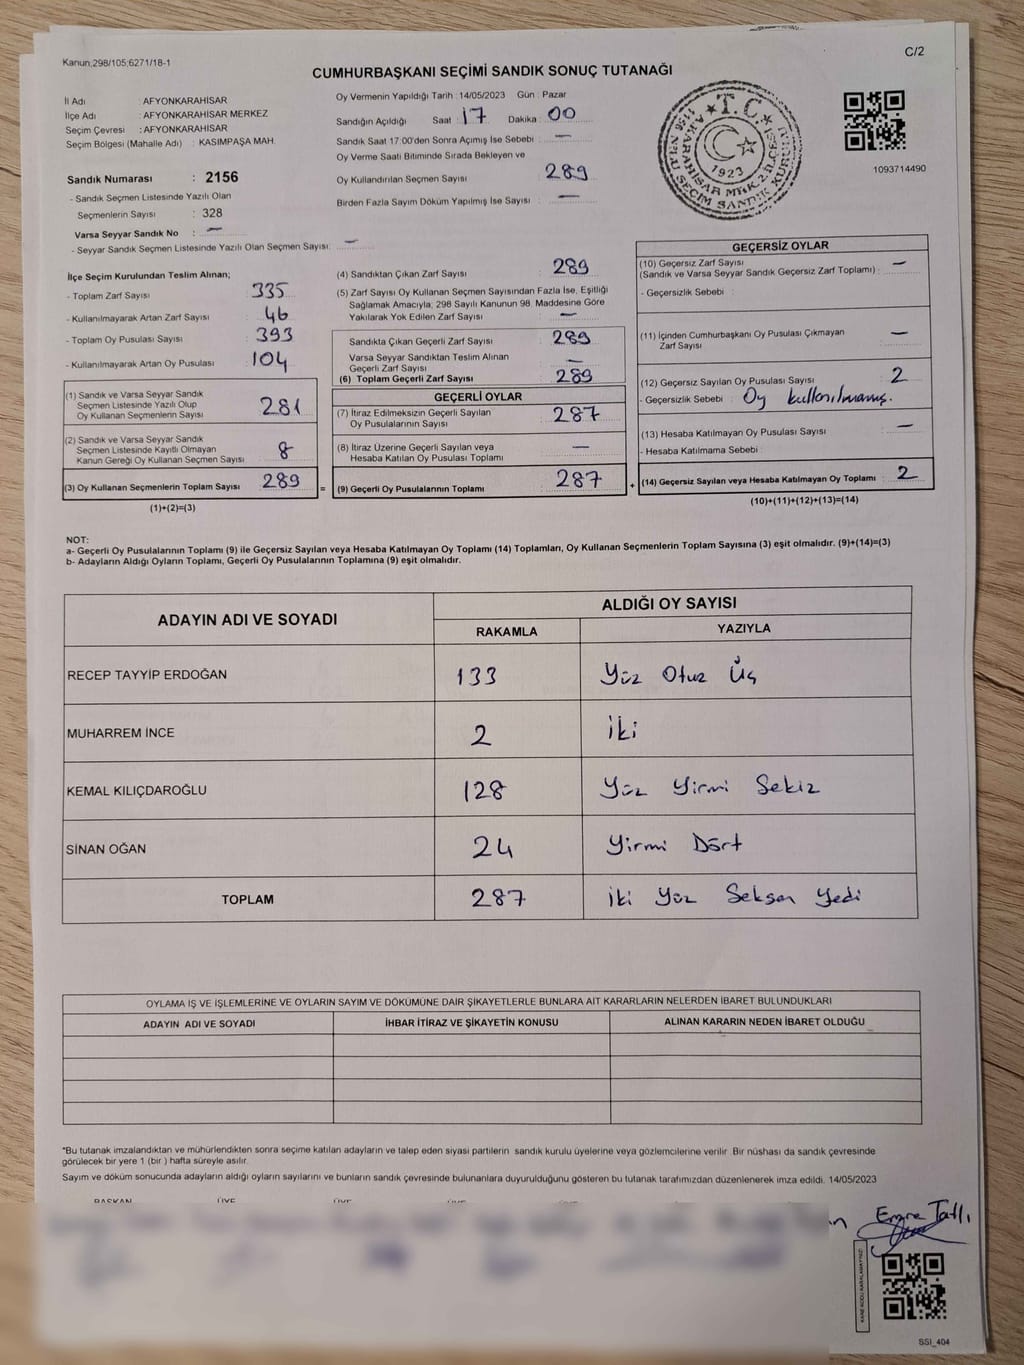 Kanun,298/105;6271/18-1
C/2
CUMHURBAŞKANI SEÇİMİ SANDIK SONUÇ TUTANAĞI
İl Adı : AFYONKARAHİSAR
İlçe Adı : AFYONKARAHİSAR MERKEZ
Seçim Çevresi : AFYONKARAHİSAR
Seçim Bölgesi (Mahalle Adı) : KASIMPAŞA MAH.
Sandık Numarası : 2156
- Sandık Seçmen Listesinde Yazılı Olan
Seçmenlerin Sayısı : 328
Varsa Seyyar Sandık No : —
- Seyyar Sandık Seçmen Listesinde Yazılı Olan Seçmen Sayısı: —
Oy Vermenin Yapıldığı Tarih : 14/05/2023 Gün : Pazar
Sandığın Açıldığı Saat : 17 Dakika : 00
Sandık Saat 17:00'den Sonra Açımış İse Sebebi : —
Oy Verme Saati Bitiminde Sırada Bekleyen ve
Oy Kullandırılan Seçmen Sayısı : 289
Birden Fazla Sayım Döküm Yapılmış İse Sayısı : —
T.C.
1923
1093714490
İlçe Seçim Kurulundan Teslim Alınan;
- Toplam Zarf Sayısı : 335
- Kullanılmayarak Artan Zarf Sayısı : 46
- Toplam Oy Pusulası Sayısı : 393
- Kullanılmayarak Artan Oy Pusulası : 104
(1) Sandık ve Varsa Seyyar Sandık
Seçmen Listesinde Yazılı Olup
Oy Kullanan Seçmenlerin Sayısı : 281
(2) Sandık ve Varsa Seyyar Sandık
Seçmen Listesinde Kayıtlı Olmayan
Kanun Gereği Oy Kullanan Seçmen Sayısı : 8
(3) Oy Kullanan Seçmenlerin Toplam Sayısı : 289
(1)+(2)=(3)
=
(4) Sandıktan Çıkan Zarf Sayısı : 289
(5) Zarf Sayısı Oy Kullanan Seçmen Sayısından Fazla İse, Eşitliği
Sağlamak Amacıyla; 298 Sayılı Kanunun 98. Maddesine Göre
Yakılarak Yok Edilen Zarf Sayısı : —
Sandıkta Çıkan Geçerli Zarf Sayısı : 289
Varsa Seyyar Sandıktan Teslim Alınan
Geçerli Zarf Sayısı : —
(6) Toplam Geçerli Zarf Sayısı : 289
GEÇERLİ OYLAR
(7) İtiraz Edilmeksizin Geçerli Sayılan
Oy Pusulalarının Sayısı : 287
(8) İtiraz Üzerine Geçerli Sayılan veya
Hesaba Katılan Oy Pusulası Toplamı : —
(9) Geçerli Oy Pusulalarının Toplamı : 287
+
GEÇERSİZ OYLAR
(10) Geçersiz Zarf Sayısı
(Sandık ve Varsa Seyyar Sandık Geçersiz Zarf Toplamı) : —
- Geçersizlik Sebebi :
(11) İçinden Cumhurbaşkanı Oy Pusulası Çıkmayan
Zarf Sayısı : —
(12) Geçersiz Sayılan Oy Pusulası Sayısı : 2
- Geçersizlik Sebebi : Oy kullanılmamış.
(13) Hesaba Katılmayan Oy Pusulası Sayısı : —
- Hesaba Katılmama Sebebi :
(14) Geçersiz Sayılan veya Hesaba Katılmayan Oy Toplamı : 2
(10)+(11)+(12)+(13)=(14)
NOT:
a- Geçerli Oy Pusulalarının Toplamı (9) ile Geçersiz Sayılan veya Hesaba Katılmayan Oy Toplamı (14) Toplamları, Oy Kullanan Seçmenlerin Toplam Sayısına (3) eşit olmalıdır. (9)+(14)=(3)
b- Adayların Aldığı Oyların Toplamı, Geçerli Oy Pusulalarının Toplamına (9) eşit olmalıdır.
ADAYIN ADI VE SOYADI
ALDIĞI OY SAYISI
RAKAMLA YAZIYLA
RECEP TAYYİP ERDOĞAN 133 Yüz Otuz Üç
MUHARREM İNCE 2 İki
KEMAL KILIÇDAROĞLU 128 Yüz Yirmi Sekiz
SİNAN OĞAN 24 Yirmi Dört
TOPLAM 287 İki Yüz Seksen Yedi
OYLAMA İŞ VE İŞLEMLERİNE VE OYLARIN SAYIM VE DÖKÜMÜNE DAİR ŞİKAYETLERLE BUNLARA AİT KARARLARIN NELERDEN İBARET BULUNDUKLARI
ADAYIN ADI VE SOYADI İHBAR İTİRAZ VE ŞİKAYETİN KONUSU ALINAN KARARIN NEDEN İBARET OLDUĞU
*Bu tutanak imzalandıktan ve mühürlendikten sonra seçime katılan adayların ve talep eden siyasi partilerin sandık kurulu üyelerine veya gözlemcilerine verilir. Bir nüshası da sandık çevresinde
görülecek bir yere 1 (bir ) hafta süreyle asılır.
Sayım ve döküm sonucunda adayların aldığı oyların sayılarını ve bunların sandık çevresinde bulunanlara duyurulduğunu gösteren bu tutanak tarafımızdan düzenlenerek imza edildi. 14/05/2023
BAŞKAN ÜYE ÜYE ÜYE
Emre Tatlı
SSI_404